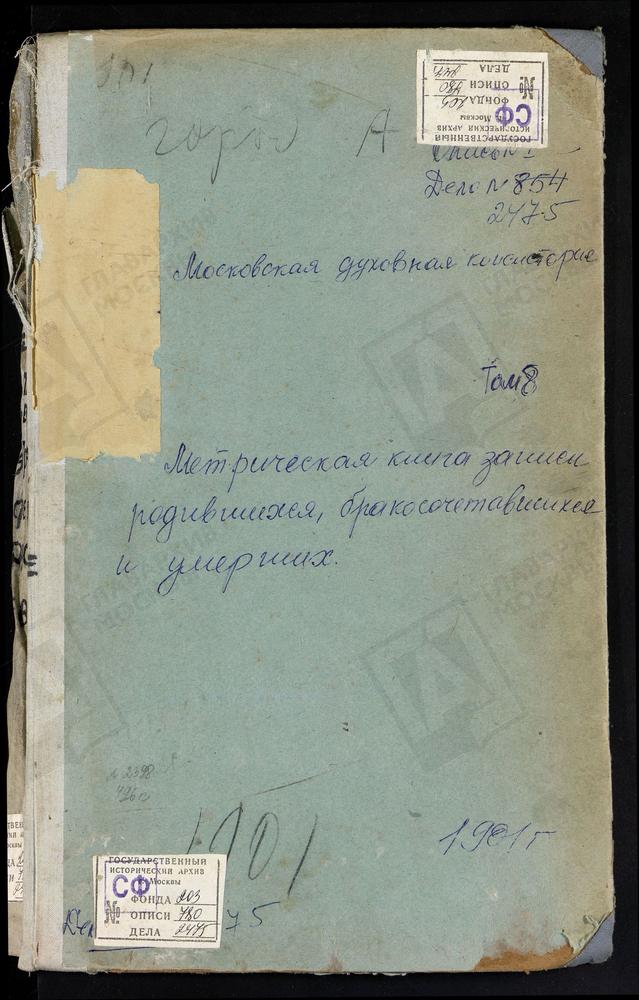 101
город А
ГОСУДАРСТВЕННЫЙ
ИСТОРИЧЕСКИЙ АРХИВ
г. Москвы
СФ
№
ФОНДА 203
ОПИСИ 780
ДЕЛА 2475
Опись №1
Дело № 854
2475
Московская духовная консистория
Том 8
Метрическая книга записи
родившихся, бракосочетавшихся
и умерших.
№ 2398
1901
1901 г
ГОСУДАРСТВЕННЫЙ
ИСТОРИЧЕСКИЙ АРХИВ
г. Москвы
СФ
№
ФОНДА 203
ОПИСИ 780
ДЕЛА 2475
75